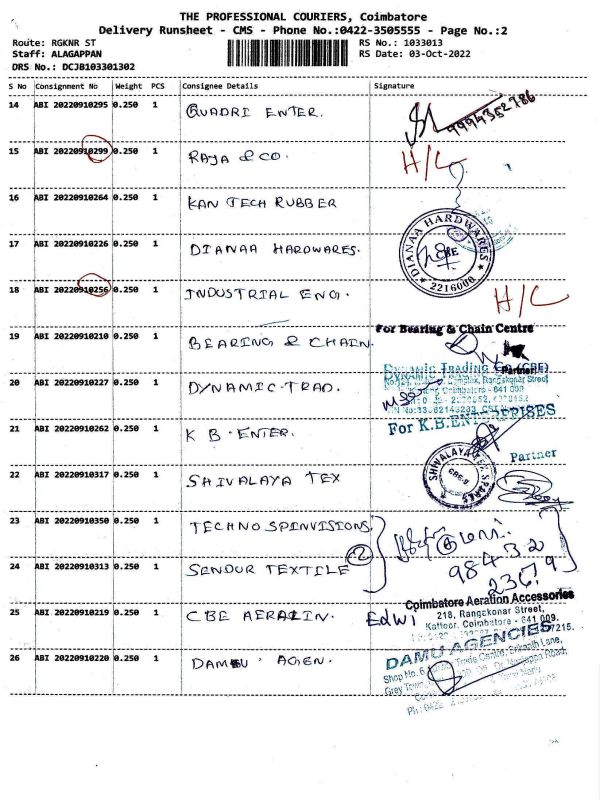 THE PROFESSIONAL COURIERS, Coimbatore
Delivery Runsheet - CMS - Phone No.:0422-3505555 - Page No.:2
Route: RGKNR ST
RS No.: 1033013
Staff: ALAGAPPAN
RS Date: 03-Oct-2022
DRS No.: DCJB103301302
S No Consignment No Weight PCS Consignee Details Signature
14 ABI 20220910295 0.250 1 QUADRI ENTER.
9994352786
15 ABI 20220910299 0.250 1 RAJA & CO. H/C
16 ABI 20220910264 0.250 1 KAN TECH RUBBER
17 ABI 20220910226 0.250 1 DIANAA HARDWARES.
DIANAA HARDWARES
CBE
2216000
18 ABI 20220910256 0.250 1 INDUSTRIAL ENG. H/C
19 ABI 20220910210 0.250 1 BEARING & CHAIN.
For Bearing & Chain Centre
Partner
20 ABI 20220910227 0.250 1 DYNAMIC TRAD.
DYNAMIC TRADING Co (CBE)
Rangakonar Street
Coimbatore - 641 009
21 ABI 20220910262 0.250 1 K B ENTER.
For K.B.ENTERPRISES
Partner
22 ABI 20220910317 0.250 1 SHIVALAYA TEX
SHIVALAYA TEX SPARES
23 ABI 20220910350 0.250 1 TECHNO SPINVISIONS
2
98432
23679
24 ABI 20220910313 0.250 1 SENDUR TEXTILE
25 ABI 20220910219 0.250 1 CBE AERATIN. Edwi
Coimbatore Aeration Accessories
218, Rangakonar Street,
Kattoor, Coimbatore - 641 009.
26 ABI 20220910220 0.250 1 DAMU AGEN.
DAMU AGENCIES